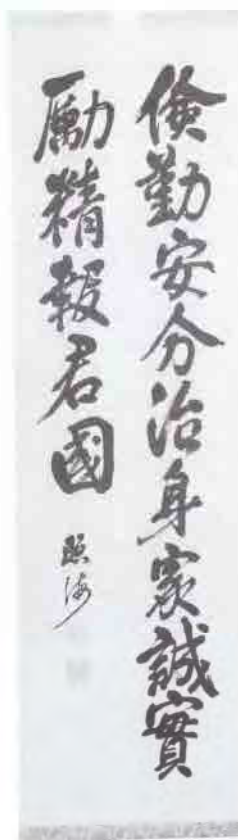 儉勤安分治身家誠實
勵精報君國
照海